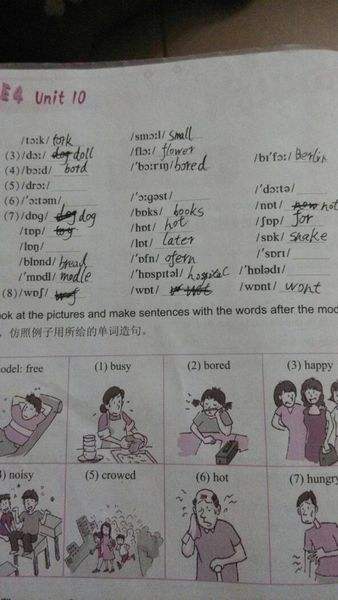 Unit 10
/tɔːk/ tork /smɔːl/ small
(3) /dɔː/ dog doll /flɔː/ flower /bɪˈfɔː/ Berlin
(4) /bɔːd/ bord /ˈbɔːrɪŋ/ bored
(5) /drɔː/
(6) /ˈɔːtəm/ /ˈɔːgəst/ /ˈdɔːtə/
(7) /dɒg/ dog /bʊks/ books /nɒt/ not
/tɒp/ /hɒt/ hot /ʃɒp/ for
/lɒŋ/ /lɒt/ later /sɒk/ snake
/blɒnd/ bread /ˈɒfn/ ofern /ˈsɒrɪ/
/ˈmɒdl/ modle /ˈhɒspɪtəl/ hospitel /ˈhɒlədɪ/
(8) /wɒʃ/ /wɒt/ /wɒnt/ wont
ook at the pictures and make sentences with the words after the mod
，仿照例子用所给的单词造句。
odel: free (1) busy (2) bored (3) happy
) noisy (5) crowed (6) hot (7) hungry